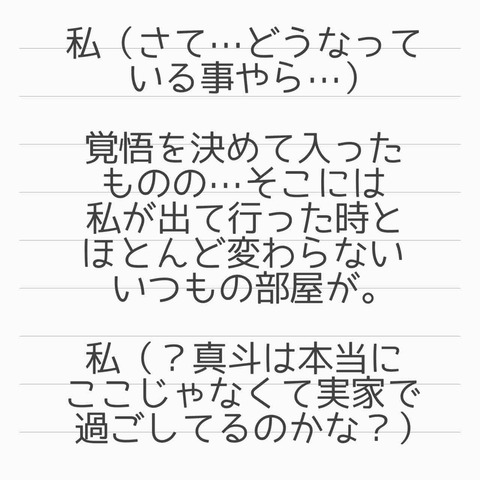 私（さて…どうなって
いる事やら…）
覚悟を決めて入った
ものの…そこには
私が出て行った時と
ほとんど変わらない
いつもの部屋が。
私（？真斗は本当に
ここじゃなくて実家で
過ごしてるのかな？）